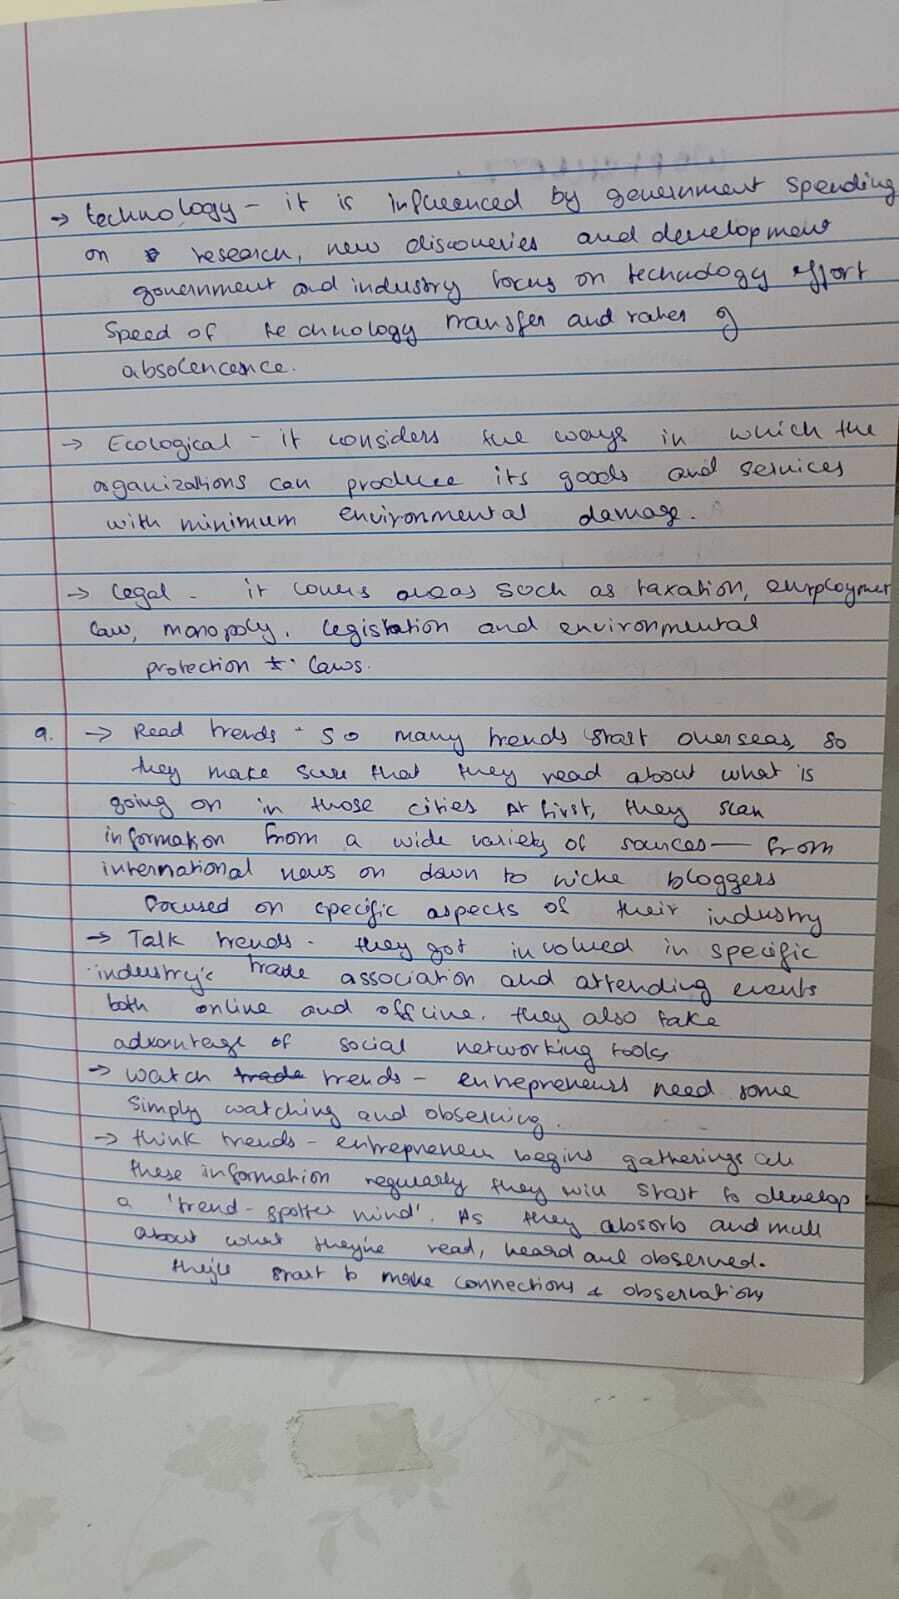 → technology - it is influenced by government spending
on research, new discoveries and development
government and industry focus on technology effort
Speed of technology transfer and rates of
absolencence.
→ Ecological - it considers the ways in which the
organizations can produce its goods and services
with minimum environmental damage.
→ legal - it covers areas such as taxation, employment
law, monopoly, legislation and environmental
protection laws.
9. → Read trends - so many trends start overseas, so
they make sure that they read about what is
going on in those cities At first, they scan
information from a wide variety of sources — from
international news on down to niche bloggers
focused on specific aspects of their industry
→ Talk trends - they got involved in specific
industry's trade association and attending events
both online and offline. they also take
advantage of social networking tools
→ watch trade trends - entrepreneurs need some
simply watching and observing.
→ think trends - entrepreneur begins gatherings all
these information regularly they will start to develop
a 'trend-spotter mind'. As they absorb and mull
about what they're read, heard and observed.
they'll start to make connections & observations